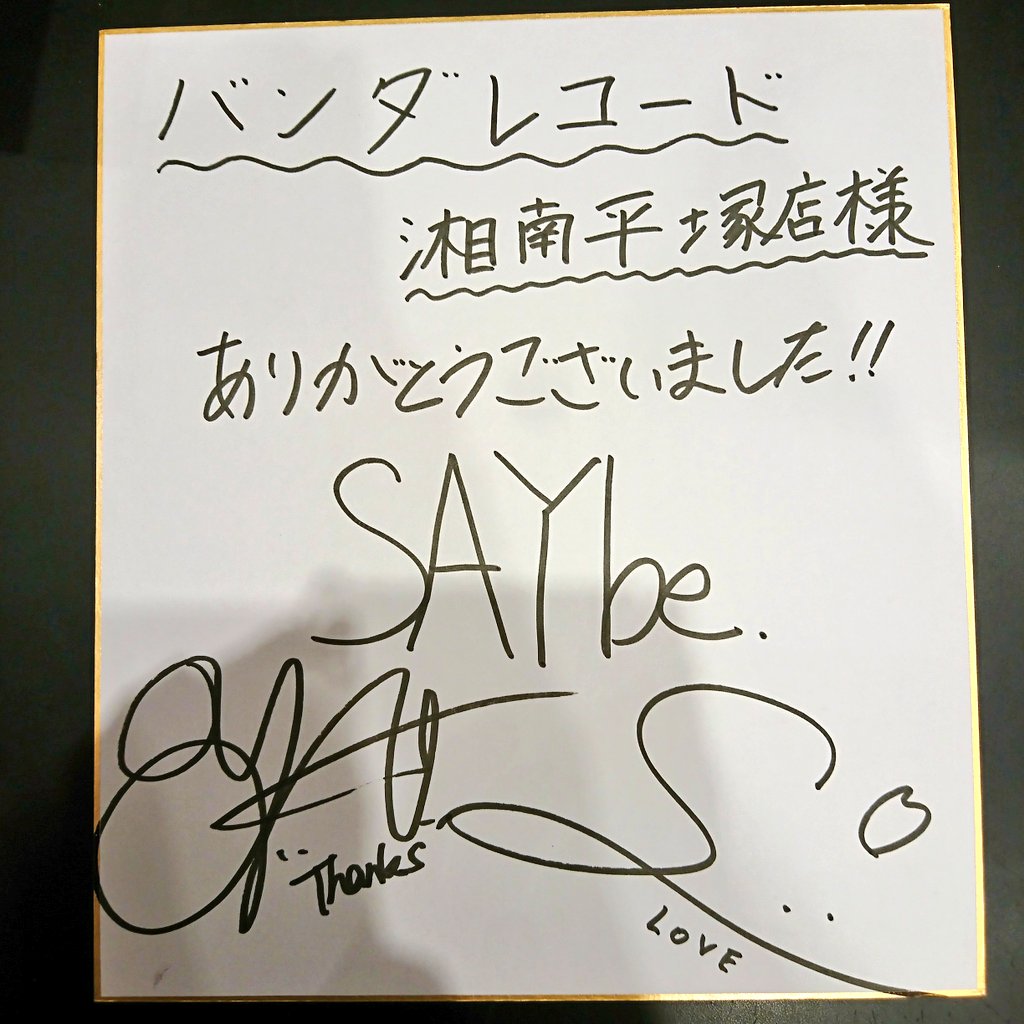 バンダレコード
湘南平塚店様
ありがとうございました!!
SAYbe.
Thanks
LOVE